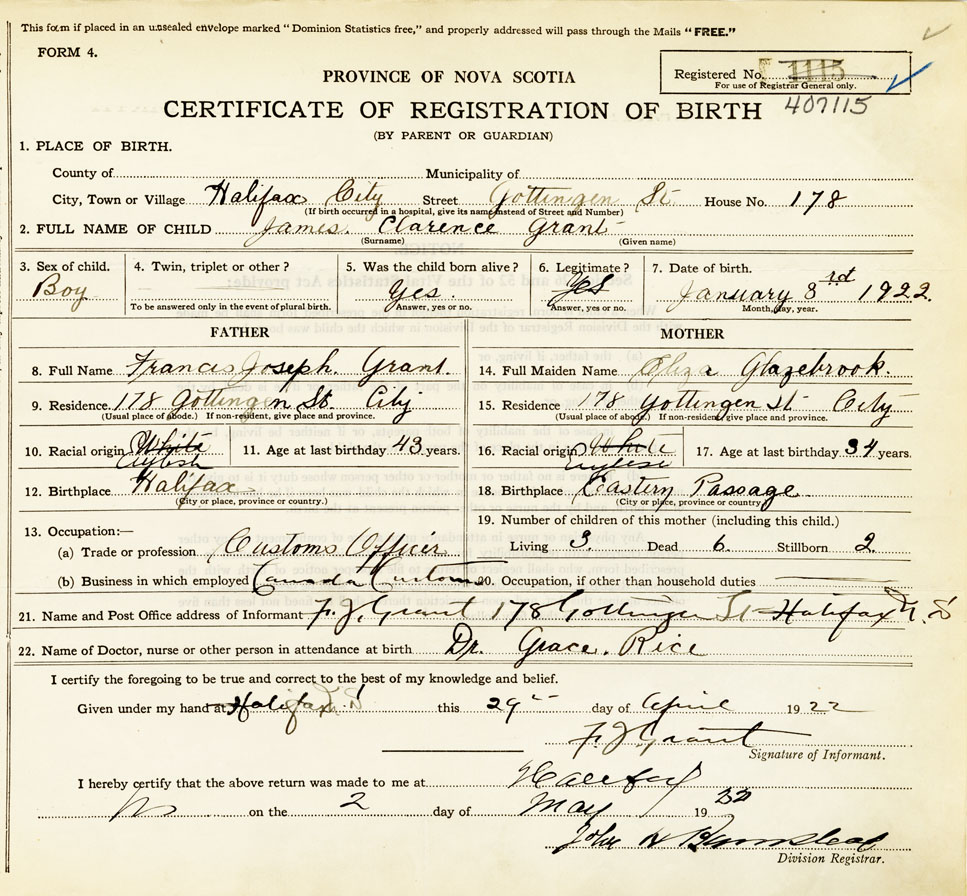 This form if placed in an unsealed envelope marked "Dominion Statistics free," and properly addressed will pass through the Mails "FREE."
FORM 4.
Registered No. 1115
For use of Registrar General only.
407115
PROVINCE OF NOVA SCOTIA
CERTIFICATE OF REGISTRATION OF BIRTH
(BY PARENT OR GUARDIAN)
1. PLACE OF BIRTH.
County of Municipality of
City, Town or Village Halifax City Street Gottingen St. House No. 178
(If birth occurred in a hospital, give its name instead of Street and Number)
2. FULL NAME OF CHILD James Clarence Grant
(Surname) (Given name)
3. Sex of child. 4. Twin, triplet or other? 5. Was the child born alive? 6. Legitimate? 7. Date of birth.
Boy Yes. Yes January 8rd 1922.
To be answered only in the event of plural birth. Answer, yes or no. Answer, yes or no. Month, day, year.
FATHER MOTHER
8. Full Name Francis Joseph Grant. 14. Full Maiden Name Eliza Glazebrook.
9. Residence. 178 Gottingen St. City 15. Residence 178 Gottingen St City
(Usual place of abode.) If non-resident, give place and province. (Usual place of abode.) If non-resident, give place and province.
10. Racial origin White 11. Age at last birthday 43 years. 16. Racial origin White 17. Age at last birthday 34 years.
12. Birthplace Halifax 18. Birthplace Eastern Passage
(City or place, province or country.) (City or place, province or country.)
13. Occupation:— 19. Number of children of this mother (including this child.)
(a) Trade or profession Customs Officer Living 3. Dead 6. Stillborn 2.
(b) Business in which employed Canada Customs 20. Occupation, if other than household duties
21. Name and Post Office address of Informant F. J. Grant 178 Gottingen St Halifax N. S
22. Name of Doctor, nurse or other person in attendance at birth Dr. Grace. Rice
I certify the foregoing to be true and correct to the best of my knowledge and belief.
Given under my hand at Halifax N. S this 29 day of April 1922
F. J. Grant
Signature of Informant.
I hereby certify that the above return was made to me at Halifax
on the 2 day of May 1922
John
Division Registrar.